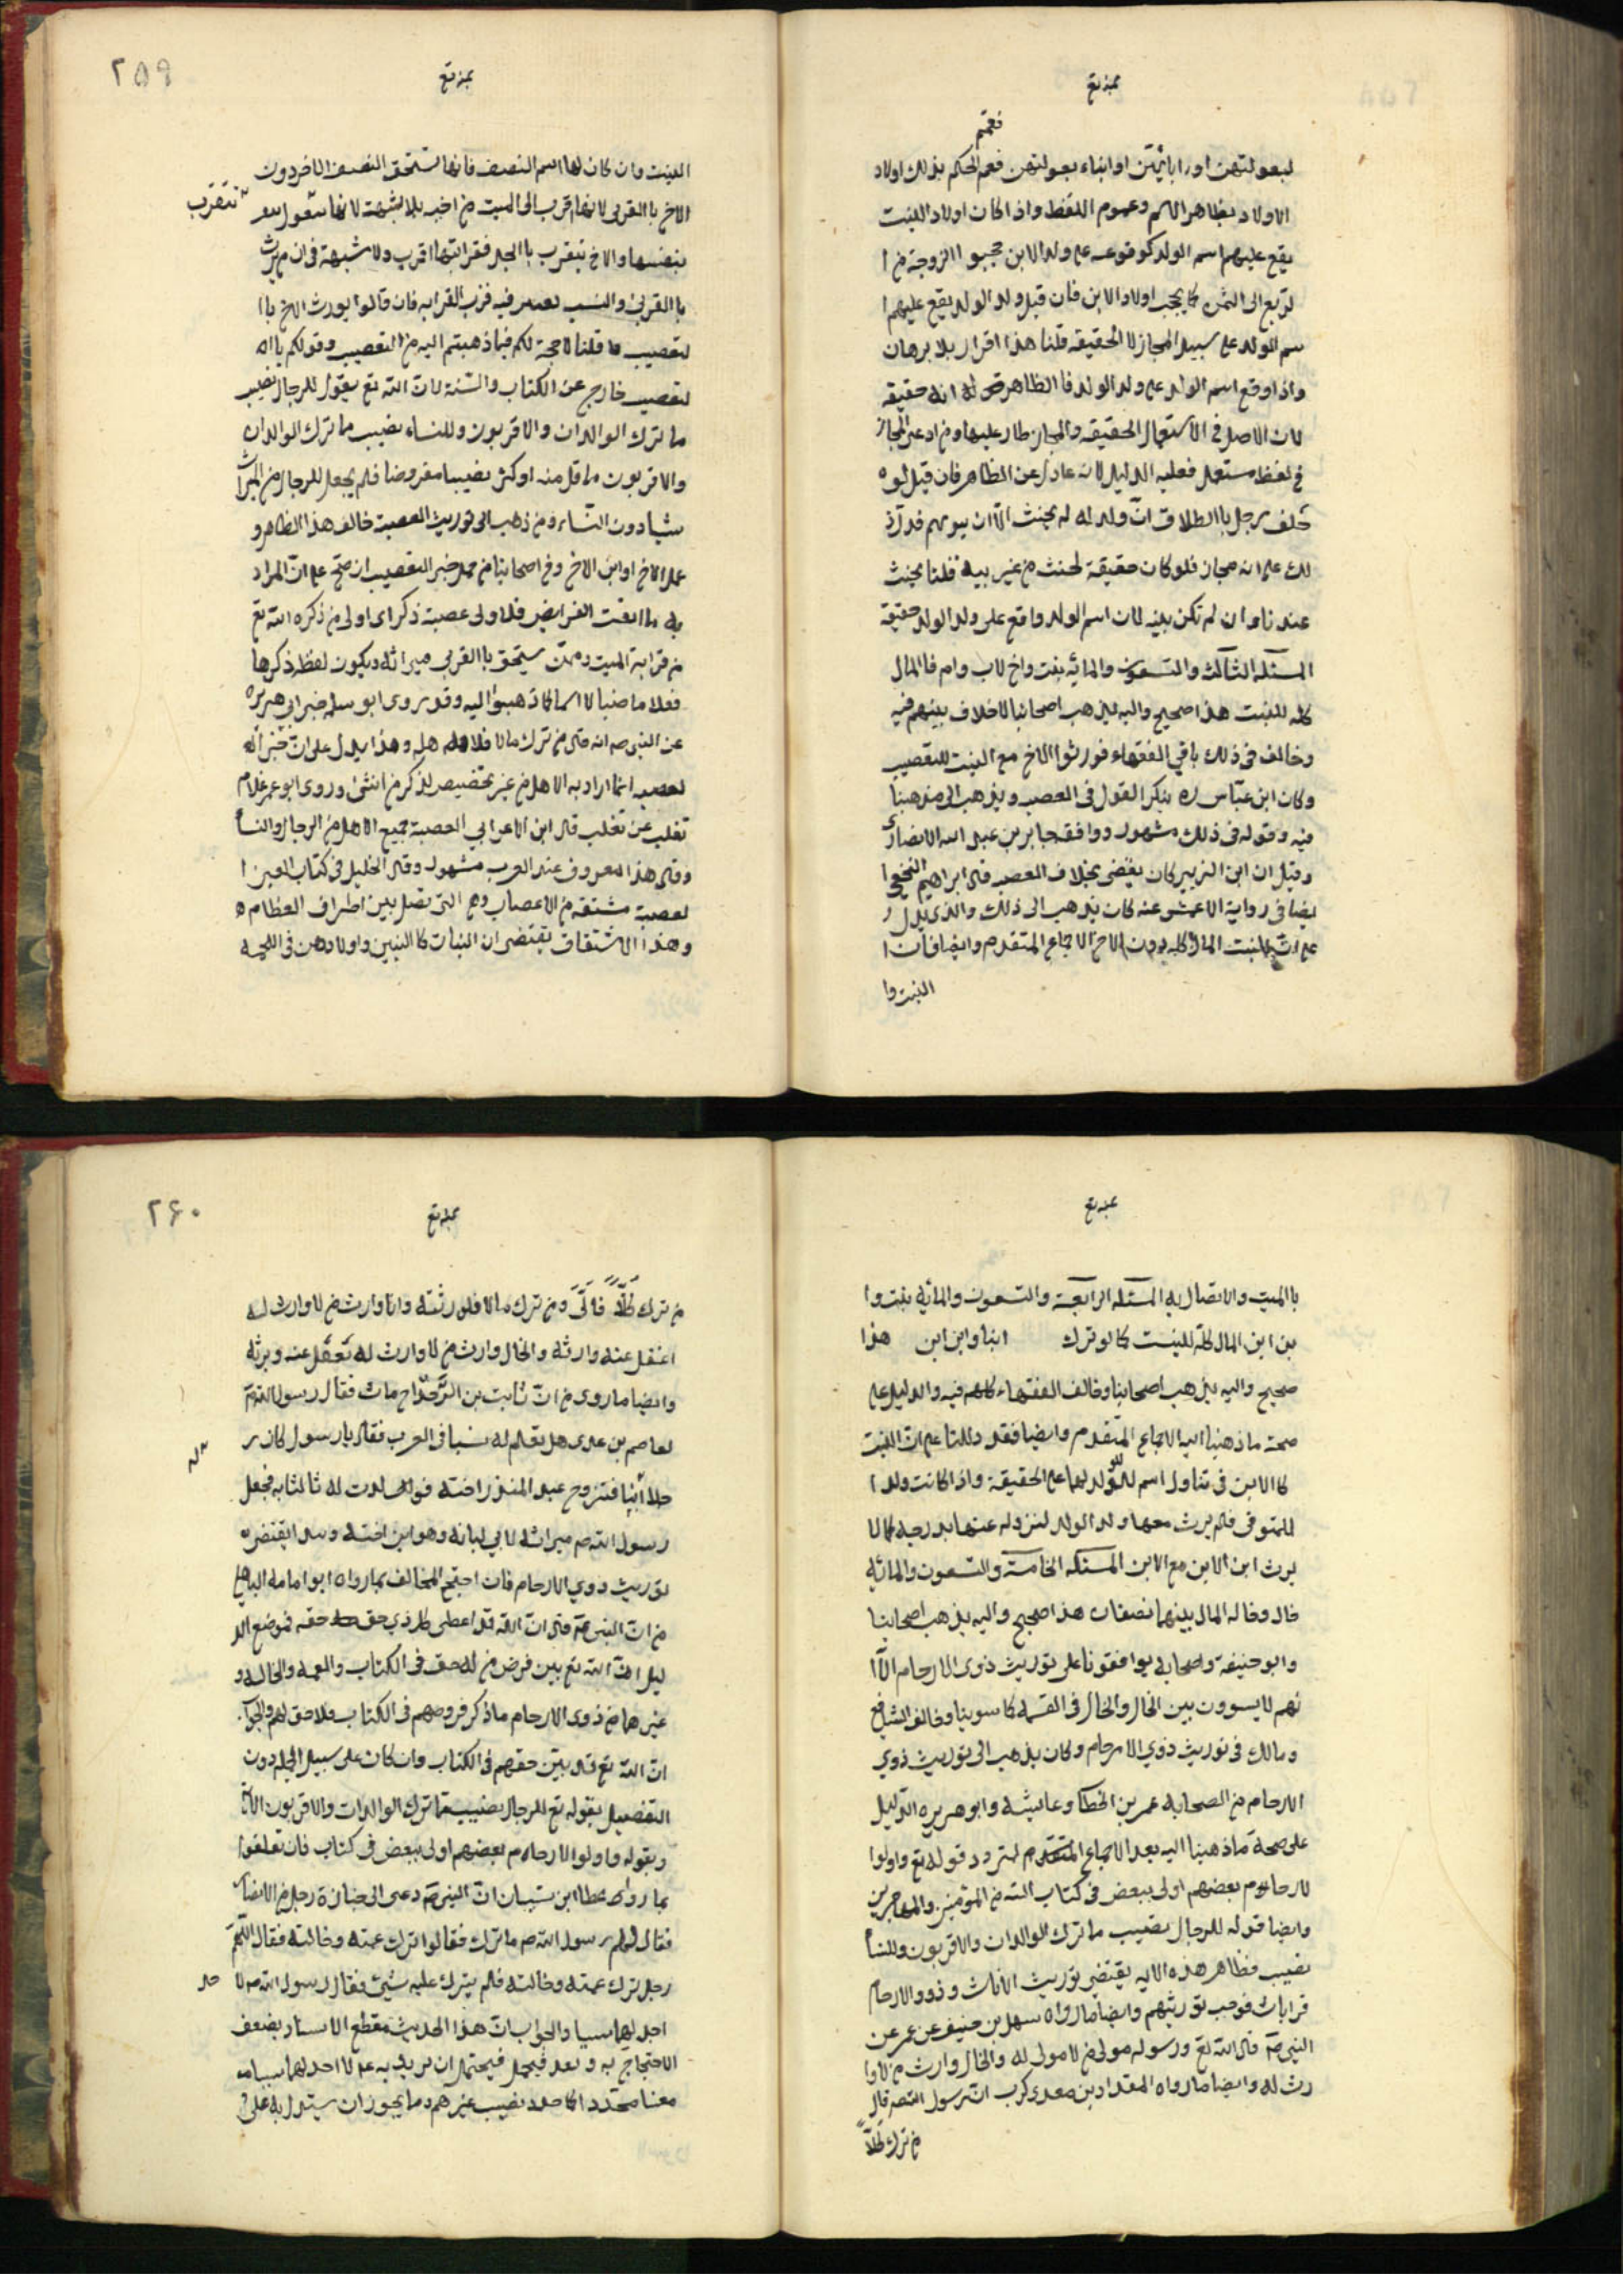 بمنه تع
فعمّهم
لبعولتهن او ابائهن او ابناء بعولتهن فعم الحكم بذلك اولاد
الاولاد بظاهر الاسم وعموم اللفظ واذا كان اولاد البنت
يقع عليهم اسم الولد كوقوعه على ولد الابن حجبوا الزوجة من ا
لربع الى الثمن كما يحجب اولاد الابن فان قيل ولد الولد يقع عليهم ا
سم الولد على سبيل المجاز لا الحقيقة قلنا هذا اقرار بلا برهان
واذا وقع اسم الولد على ولد الولد فالظاهر انه حقيقة
لان الاصل في الاستعمال الحقيقة والمجاز طار عليها ومن ادعى المجاز
في لفظ مستعمل فعليه الدليل لانه عادل عن الظاهر فان قيل لو
حلف رجل باالطلاق انّ ولد له لم يحنث الّا ان ينويهم فدلّ ذ
لك على انه مجاز فلو كان حقيقة لحنث من غير نية قلنا يحنث
عندنا وان لم تكن بنية لان اسم الولد واقع على ولد الولد حقيقة
المسئلة الثالثة والتسعون والمائه بنت واخ لاب وام فالمال
كله للبنت هذا صحيح واليه يذهب اصحابنا لا خلاف بينهم فيه
وخالف في ذلك باقي الفقهاء فورثوا الاخ مع البنت للتعصيب
وكان ابن عبّاس ره ينكر القول في العصب ويذهب الى مذهبنا
فيه وقوله في ذلك مشهور ووافقه جابر بن عبد الله الانصاري
وقيل ان ابن الزبير كان يقضى بخلاف العصب قال ابراهيم النخعي ا
يضا في رواية الاعمش عنه كان يذهب الى ذلك والذي يدل
على انّ للبنت المال كله دون الاخ الاجماع المتقدم وايضا فان ا
البنت وا
٢٥٩
بمنه تع
البنت وان كان لها اسم النصف فانها تستحق النصف الاخر دون
الاخ باالقربى لانها اقرب الى الميت من اخيه بلا شبهة لانها تتقرب
بنفسها والاخ يتقرب باالجد فقرابتها اقرب ولا شبهة في ان من يرث
باالقربى والنسب يعتبر فيه قرب القرابه فان قالوا يورث الاخ باا
لتعصيب قلنا لا حجة لكم فيما ذهبتم اليه من التعصيب وقولكم باا
لتعصيب خارج عن الكتاب والسّنة لانّ الله تع يقول للرجال نصيب
ما ترك الوالدان والاقربون وللنساء نصيب ما ترك الوالدان
والاقربون ما قل منه او كثر نصيبا مفروضا فلم يجعل للرجال من الميراث
شيئا دون النساء ومن ذهب الى توريث العصبة خالف هذا الظاهر و
على الاخ او ابن الاخ وفي اصحابنا من حمل خبر التعصيب ان صح على انّ المراد
به ما ابقت الفرايض فلاولى عصبة ذكر اى اولى من ذكره الله تع
من قرابة الميت وممّن يستحق باالقربى ميراثه ويكون لفظ ذكرها
فعلا ماضيا لا اسما كما ذهبوا اليه وقد روى ابو سلمه خبر ابى هريره
عن النبي صه انه قال من ترك مالا فلاهله وهذا يدل على انّ خبر ا
لعصبه انما اراد به الاهل من غير تخصيص لذكر من انثى وروى ابو عمر غلام
ثعلب عن ثعلب قال ابن الاعرابي العصبة جميع الاهل من الرجال والنسأ
وقال هذا المعروف عند العرب مشهور وقال الخليل في كتاب العين ا
لعصبة مشتقه من الاعصاب وهي التى تصل بين اطراف العظام ه
وهذا الاشتقاق يقتضى ان البنات كالبنين واولادهن في اللحمه
تتقرب
بمنه تع
باالميت والاتصال به المسئله الرابعة والتسعون والمائه بنت وا
بن ابن المال كلّه للبنت كما لو ترك ابنا وابن ابن هذا
صحيح واليه يذهب اصحابنا وخالف الفقهاء كلهم فيه والدليل على
صحة ما ذهبنا اليه الاجماع المتقدم وايضا فقد دللنا على انّ البنت
كاالابن في تناول اسم الولد لهما على الحقيقة واذا كانت ولدا
للمتوفى فلم يرث معها ولد الولد لنزوله عنها بدرجة كما لا
يرث ابن الابن مع الابن المسئله الخامسة والتسعون والمائه
خال وخاله المال بينهما نصفان هذا صحيح واليه يذهب اصحابنا
وابو حنيفة واصحابه يوافقونا على توريث ذوى الارحام الّا ا
نهم لا يسوون بين الخال والخال في القسمه كما سوينا وخالف الشافعي
ومالك في توريث ذوي الارحام وكان يذهب الى توريث ذوي
الارحام من الصحابه عمر بن الخطا وعائشة وابو هريره الدّليل
على صحة ما ذهبنا اليه بعد الاجماع المتقدم المتردد قوله تع واولوا
لارحام بعضهم اولى ببعض في كتاب الله من المؤمنين والمهاجرين
وايضا قوله للرجال نصيب ما ترك الوالدان والاقربون وللنسأ
نصيب فظاهر هذه الايه يقتضى توريث الاناث وذوو الارحام
قرابات فوجب توريثهم وايضا ما رواه سهل بن حنيف عن عمر عن
النبي صه قال الله تع ورسوله مولى من لا مولى له والخال وارث من لا وا
رث له وايضا ما رواه المقداد بن معدى كرب انّ رسول الله صه قال
من ترك كلّاً
٢۶٠
بمنه تع
من ترك كلّاً فالىّ ومن ترك مالا فلورثته وانا وارث من لا وارث له
اعقل عنه وارثه والخال وارث من لا وارث له يعقل عنه ويرثه
وايضا ما روى من انّ ثابت بن الدّحداح مات فقال رسول الله صه
لعاصم بن عدى هل تعلم له نسبا في العرب فقال يا رسول كان ر
جلا أتيا فتزوج عبد المنذر اخته فولدت له ثالثا به فجعل
رسول الله صه ميراثه لابي لبابه وهو ابن اخته وهذا يقتضى
توريث ذوي الارحام فان احتج المخالف بما رواه ابو امامه الباهلي
من انّ النبي صه قال انّ الله قد اعطى كل ذي حق حقه فموضع الد
ليل انّ الله تع بين فرض من له حق في الكتاب والعمه والخاله و
غيرهما من ذوى الارحام ما ذكر فروضهم في الكتاب فلا حق لهم والجواب
انّ الله تع قد بيّن حقهم في الكتاب وان كان على سبيل الجمله دون
التفصيل بقوله تع للرجال نصيب مما ترك الوالدان والاقربون الاية
وبقوله واولوا الارحام بعضهم اولى ببعض في كتاب فان تعلقوا
بما رواه عطا ابن شيبان انّ النبي صه دعى الى جنازة رجل من الانصار
فقال لهم رسول الله صه ما ترك فقالوا ترك عمته وخالته فقال اللّهمّ
رجل ترك عمته وخالته فلم ينزل عليه شيئ فقال رسول الله صه لا
اجد لهما شيا والجواب انّ هذا الحديث مقطع الاسناد يضعف
الاحتجاج به وبعد فيحمل فيحتمل ان يريد به على لا اجد لهما شيا
معنا محدّدا كما حدد نصيب غيرهم وما يجوز ان يستدل به على